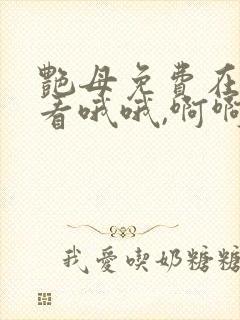 艷母免費在
看哦哦,啊啊
我愛喫奶糖糖